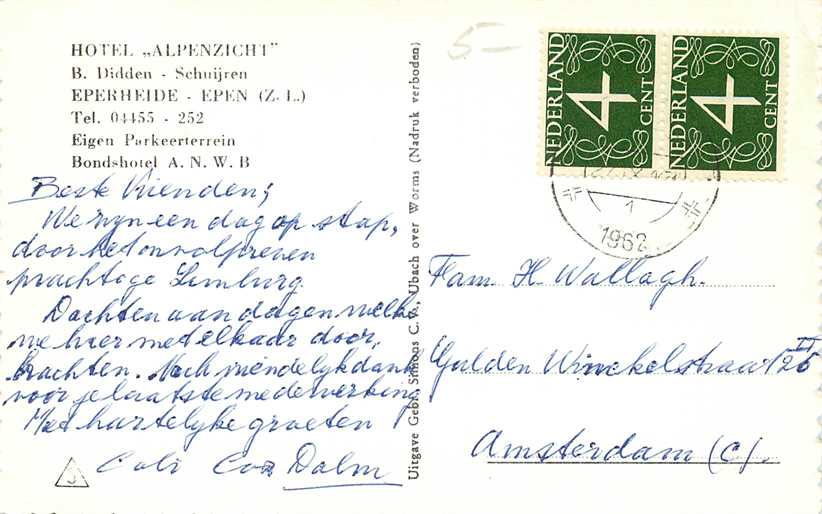 HOTEL „ALPENZICHT"
B. Didden - Schuijren
EPERHEIDE - EPEN (Z. L.)
Tel. 04455 - 252
Eigen Parkeerterrein
Bondshotel A. N. W. B
Beste Vrienden,
We zyn een dag op stap,
door het onvolprezen
prachtige Limburg
Dachten aan dagen welke
we hier met elkaar door,
brachten. Noch vriendelyk dank
voor je laatste medewerking
Met hartelyke groeten
Dalm
Uitgave Gebr. Simons C.V., Ubach over Worms (Nadruk verboden)
5-
NEDERLAND
4
CENT
NEDERLAND
4
CENT
1
1962
Fam. H. Wallagh.
Gulden Winckelstraat 126 II
Amsterdam (C).